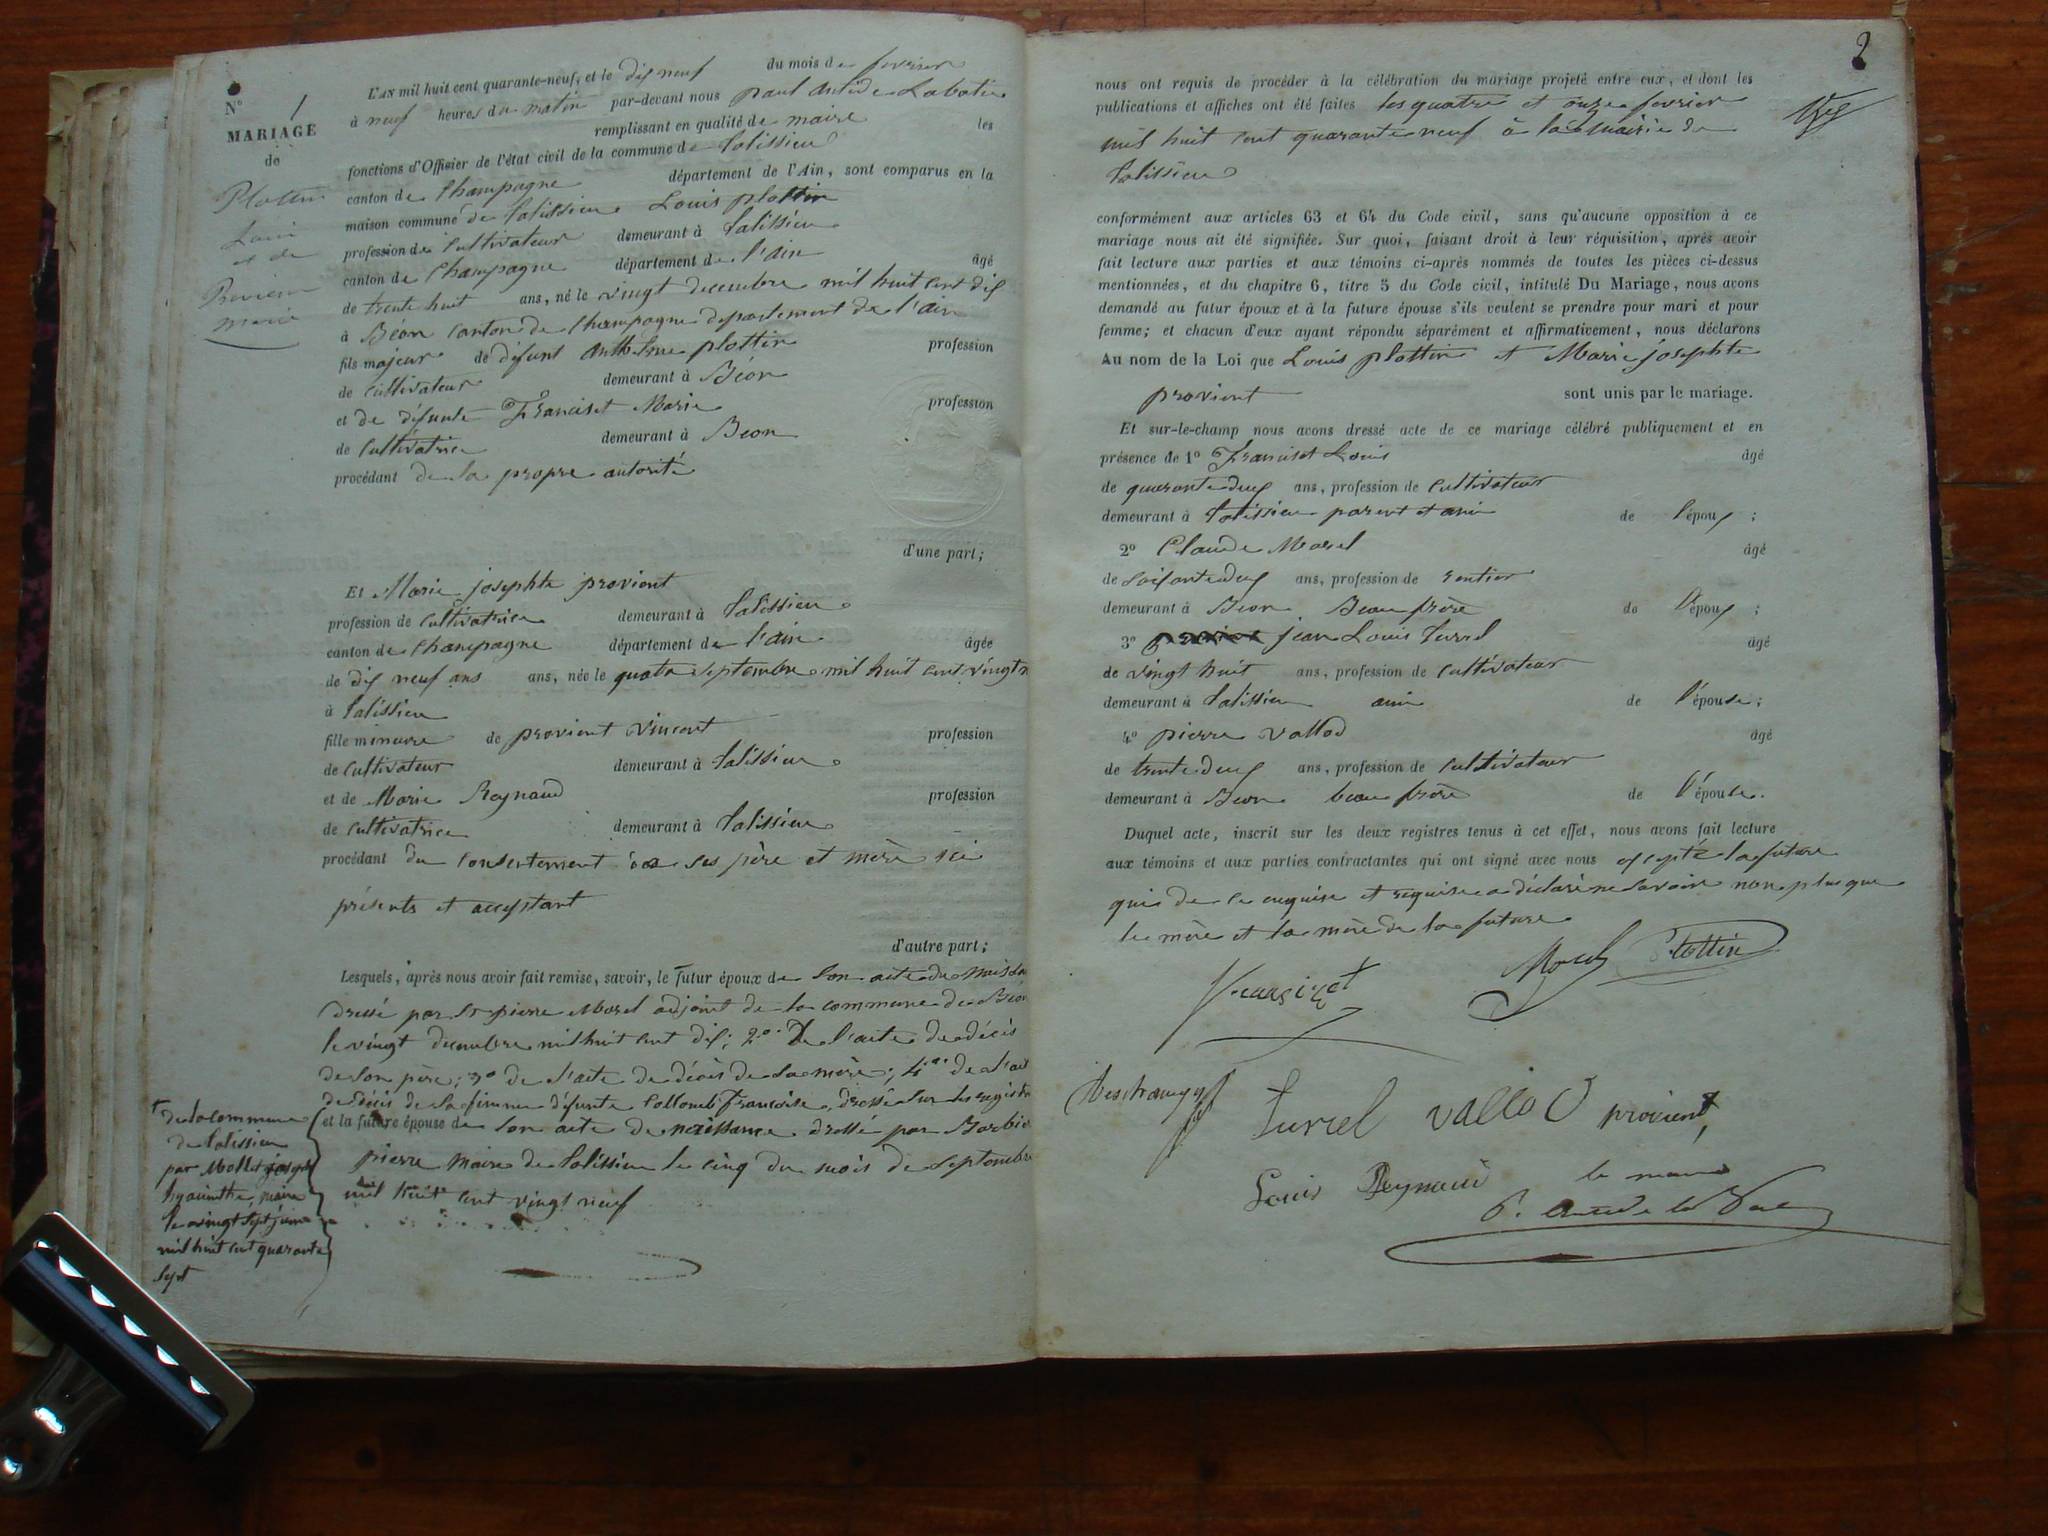 N° 1
MARIAGE
de
Plottin
Louis
et de
Provient
marie
L'AN mil huit cent quarante-neuf, et le dix neuf du mois de fevrier
à neuf heures du matin par-devant nous paul
remplissant en qualité de maire les
fonctions d'Officier de l'état civil de la commune de talissieu
canton de Champagne département de l'Ain, sont comparus en la
maison commune de talissieu Louis plottin
profession de cultivateur demeurant à talissieu
canton de Champagne département de l'ain âgé
de trente huit ans, né le vingt decembre mil huit cent dix
à Béon canton de Champagne departement de l'ain
fils majeur de défunt anthelme plottin profession
de cultivateur demeurant à Béon
et de défunte Franciset Marie profession
de Cultivatrice demeurant à Beon
procédant de sa propre autorité
d'une part;
Et Marie josephte provient
profession de cultivatrice demeurant à talissieu
canton de Champagne département de l'ain âgée
de dix neuf ans ans, née le quatre septembre mil huit cent vingt n
à talissieu
fille mineure de provient vincent profession
de cultivateur demeurant à talissieu
et de Marie Reynaud profession
de cultivatrice demeurant à talissieu
procédant du consentement de ses père et mère ici
présents et acceptant
d'autre part;
Lesquels, après nous avoir fait remise, savoir, le futur époux de son acte de naissan
dressé par Sr pierre Morel adjoint de la commune de Béon
le vingt decembre mil huit cent dix; 2° De l'acte de décès
de son père; 3° de l'acte de décès de sa mère; 4° de l'act
de décès de sa femme défunte Collomb Francoise, dressé sur les registre
et la future épouse de son acte de naissance dressé par Barbier
pierre maire de talissieu le cinq du mois de septembre
mil huit cent vingt neuf
+ de la commune
de talissieu
par Mollet joseph
hyacinthe, maire
le vingt sept juin
mil huit cent quarante
sept
2
nous ont requis de procéder à la célébration du mariage projeté entre eux, et dont les
publications et affiches ont été faites les quatre et onze fevrier
mil huit cent quarante neuf à la mairie de
talissieu
conformément aux articles 63 et 64 du Code civil, sans qu'aucune opposition à ce
mariage nous ait été signifiée. Sur quoi, faisant droit à leur réquisition, après avoir
fait lecture aux parties et aux témoins ci-après nommés de toutes les pièces ci-dessus
mentionnées, et du chapitre 6, titre 5 du Code civil, intitulé Du Mariage, nous avons
demandé au futur époux et à la future épouse s'ils veulent se prendre pour mari et pour
femme; et chacun d'eux ayant répondu séparément et affirmativement, nous déclarons
Au nom de la Loi que Louis plottin et Marie josephte
provient sont unis par le mariage.
Et sur-le-champ nous avons dressé acte de ce mariage célébré publiquement et en
présence de 1° Franciset Louis âgé
de quarante deux ans, profession de cultivateur
demeurant à talissieu parent et ami de l'époux ;
2° Claude Morel âgé
de soixante deux ans, profession de rentier
demeurant à Beon Beau frère de l'époux ;
3° jean Louis turrel âgé
de vingt huit ans, profession de cultivateur
demeurant à talissieu ami de l'épouse ;
4° pierre vallod âgé
de trente deux ans, profession de cultivateur
demeurant à Beon beau frère de l'épouse.
Duquel acte, inscrit sur les deux registres tenus à cet effet, nous avons fait lecture
aux témoins et aux parties contractantes qui ont signé avec nous excepté la future
qui de ce enquise et requise a déclaré ne savoir non plus que
le mère et la mère de la future
Morel Plottin
Franciset
Deschamps
turrel vallod provient
Louis Reynaud le maire